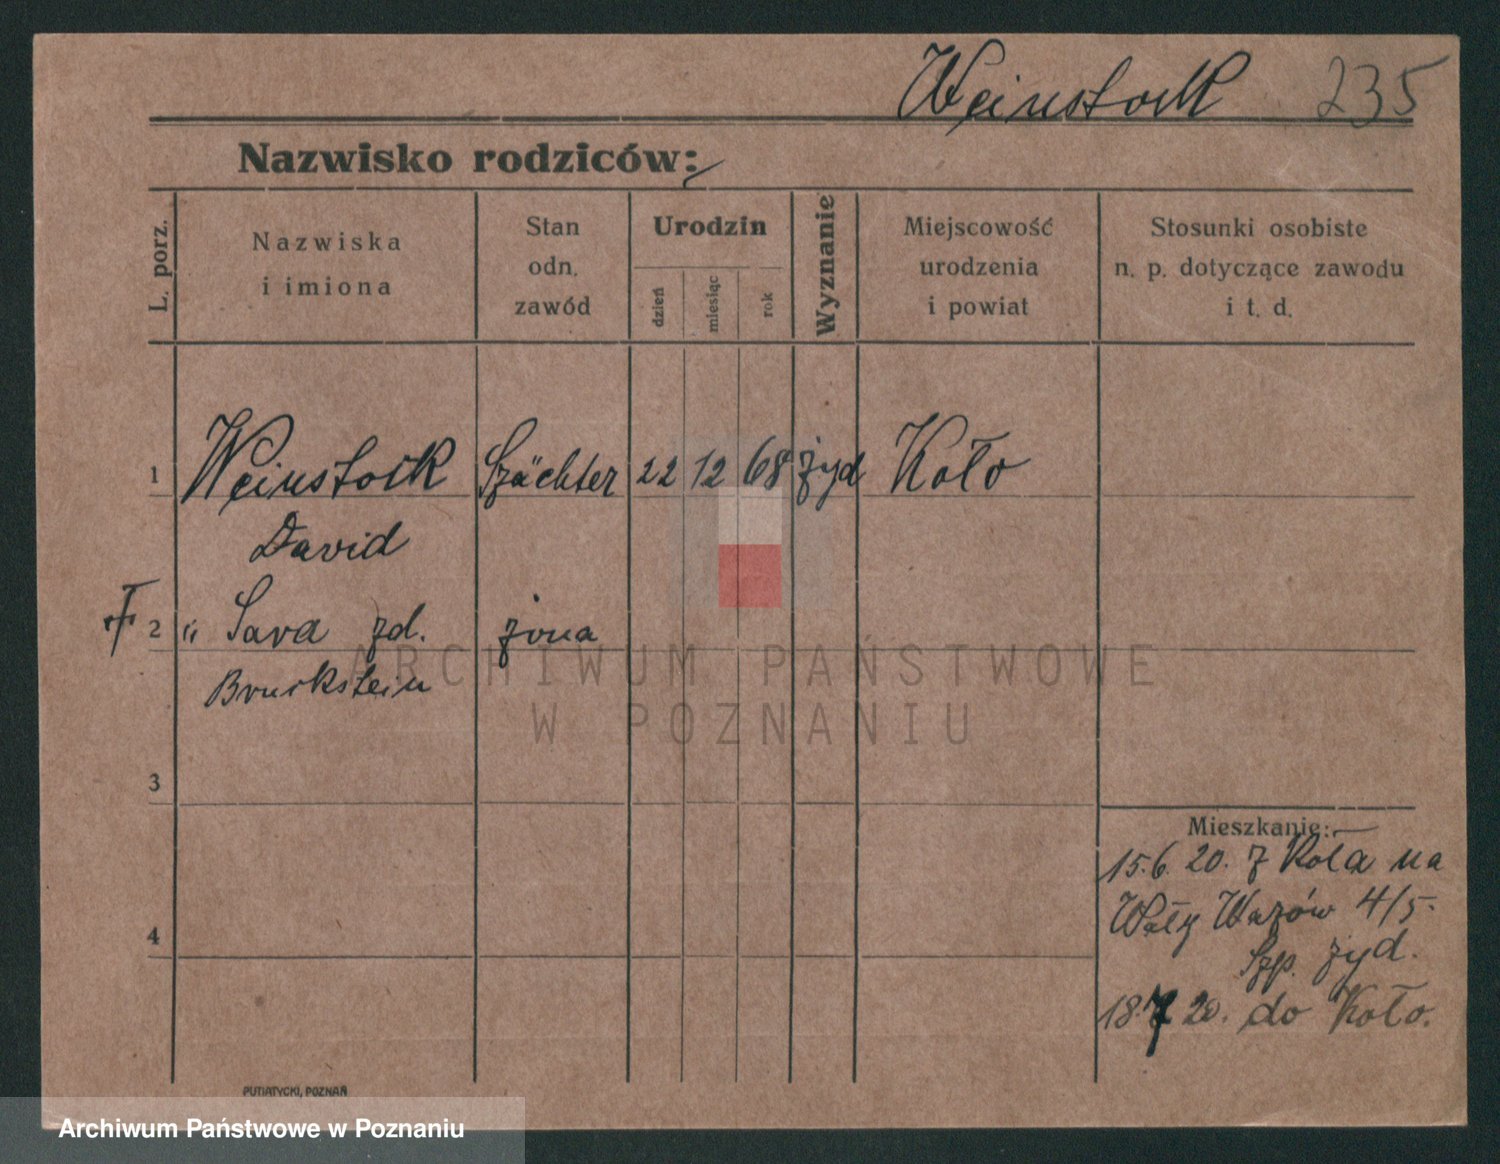 Weinstock 235
Nazwisko rodziców:
L. porz.
Nazwiska
i imiona
Stan
odn.
zawód
Urodzin
dzień
miesiąc
rok
Wyznanie
Miejscowość
urodzenia
i powiat
Stosunki osobiste
n. p. dotyczące zawodu
i t. d.
1 Weinstock Szächter 22 12 68 żyd Koło
David
2 " Sara zd. żona
Bruckstein
3
Mieszkanie:
15.6.20. z Koła na
Wały Wazów 4/5.
Szp. żyd.
4
18.7 20. do Koło.
PUTIATYCKI, POZNAŃ
ARCHIWUM PAŃSTWOWE
W POZNANIU
Archiwum Państwowe w Poznaniu